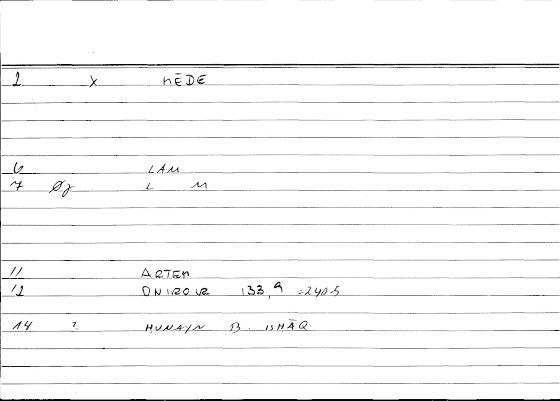 1 x hĒDE
6 LAM
7 Øz L M
11 ARTEM
12 ONIROCR 133,9 =240.5
14 ? HUNAYN B. ISHĀQ